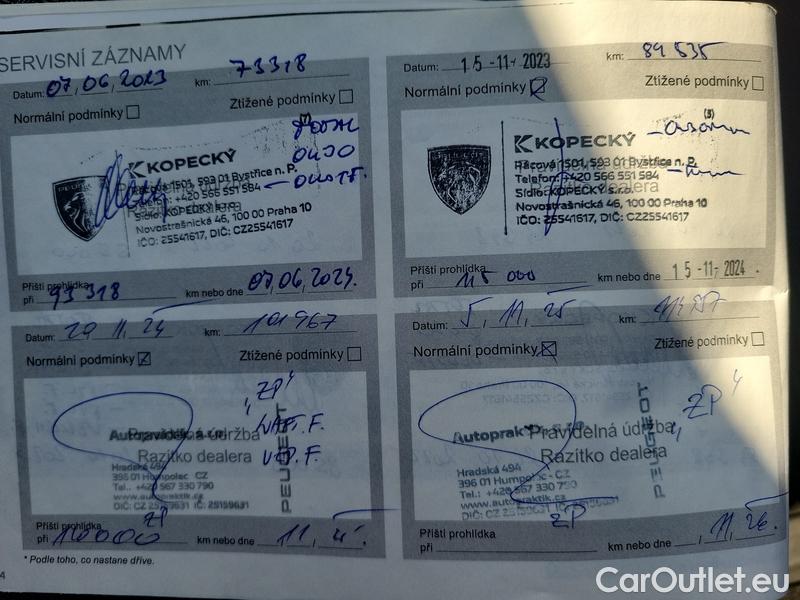 SERVISNÍ ZÁZNAMY
Datum: 07,06,2023 km: 73318
Normální podmínky Ztížené podmínky
KOPECKÝ
Pácova 1501, 593 01 Bystřice n. P.
Telefon: +420 566 551 584
Sídlo: KOPECKÝ s.r.o.
Novostrašnická 46, 100 00 Praha 10
IČO: 25541617, DIČ: CZ25541617
Příští prohlídka
při 93318 km nebo dne 07,06,2024.
Datum: 15 -11- 2023 km: 89 535
Normální podmínky Ztížené podmínky
(5)
KOPECKÝ
Pácova 1501, 593 01 Bystřice n. P.
Telefon: +420 566 551 584
Sídlo: KOPECKÝ s.r.o.
Novostrašnická 46, 100 00 Praha 10
IČO: 25541617, DIČ: CZ25541617
Příští prohlídka
při 115 000 km nebo dne 15 -11- 2024 .
Datum: 29 11. 24 km: 101 967
Normální podmínky Ztížené podmínky
"ZP"
Pravidelná údržba
Razítko dealera
PEUGEOT
Hradská 494
396 01 Humpolec CZ
Tel.: +420 567 330 790
www.autopraktik.cz
DIČ: CZ 25159631 IČ: 25159631
ZP
Příští prohlídka
při km nebo dne 11,
Datum: 5, 11, 25 km:
Normální podmínky Ztížené podmínky
"ZP"
Pravidelná údržba
Razítko dealera
PEUGEOT
Hradská 494
396 01 Humpolec - CZ
Tel.: +420 567 330 790
www.autopraktik.cz
DIČ: CZ 25159631 IČ: 25159631
ZP
Příští prohlídka
při km nebo dne 11, 26.
* Podle toho, co nastane dříve.
4
CarOutlet.eu